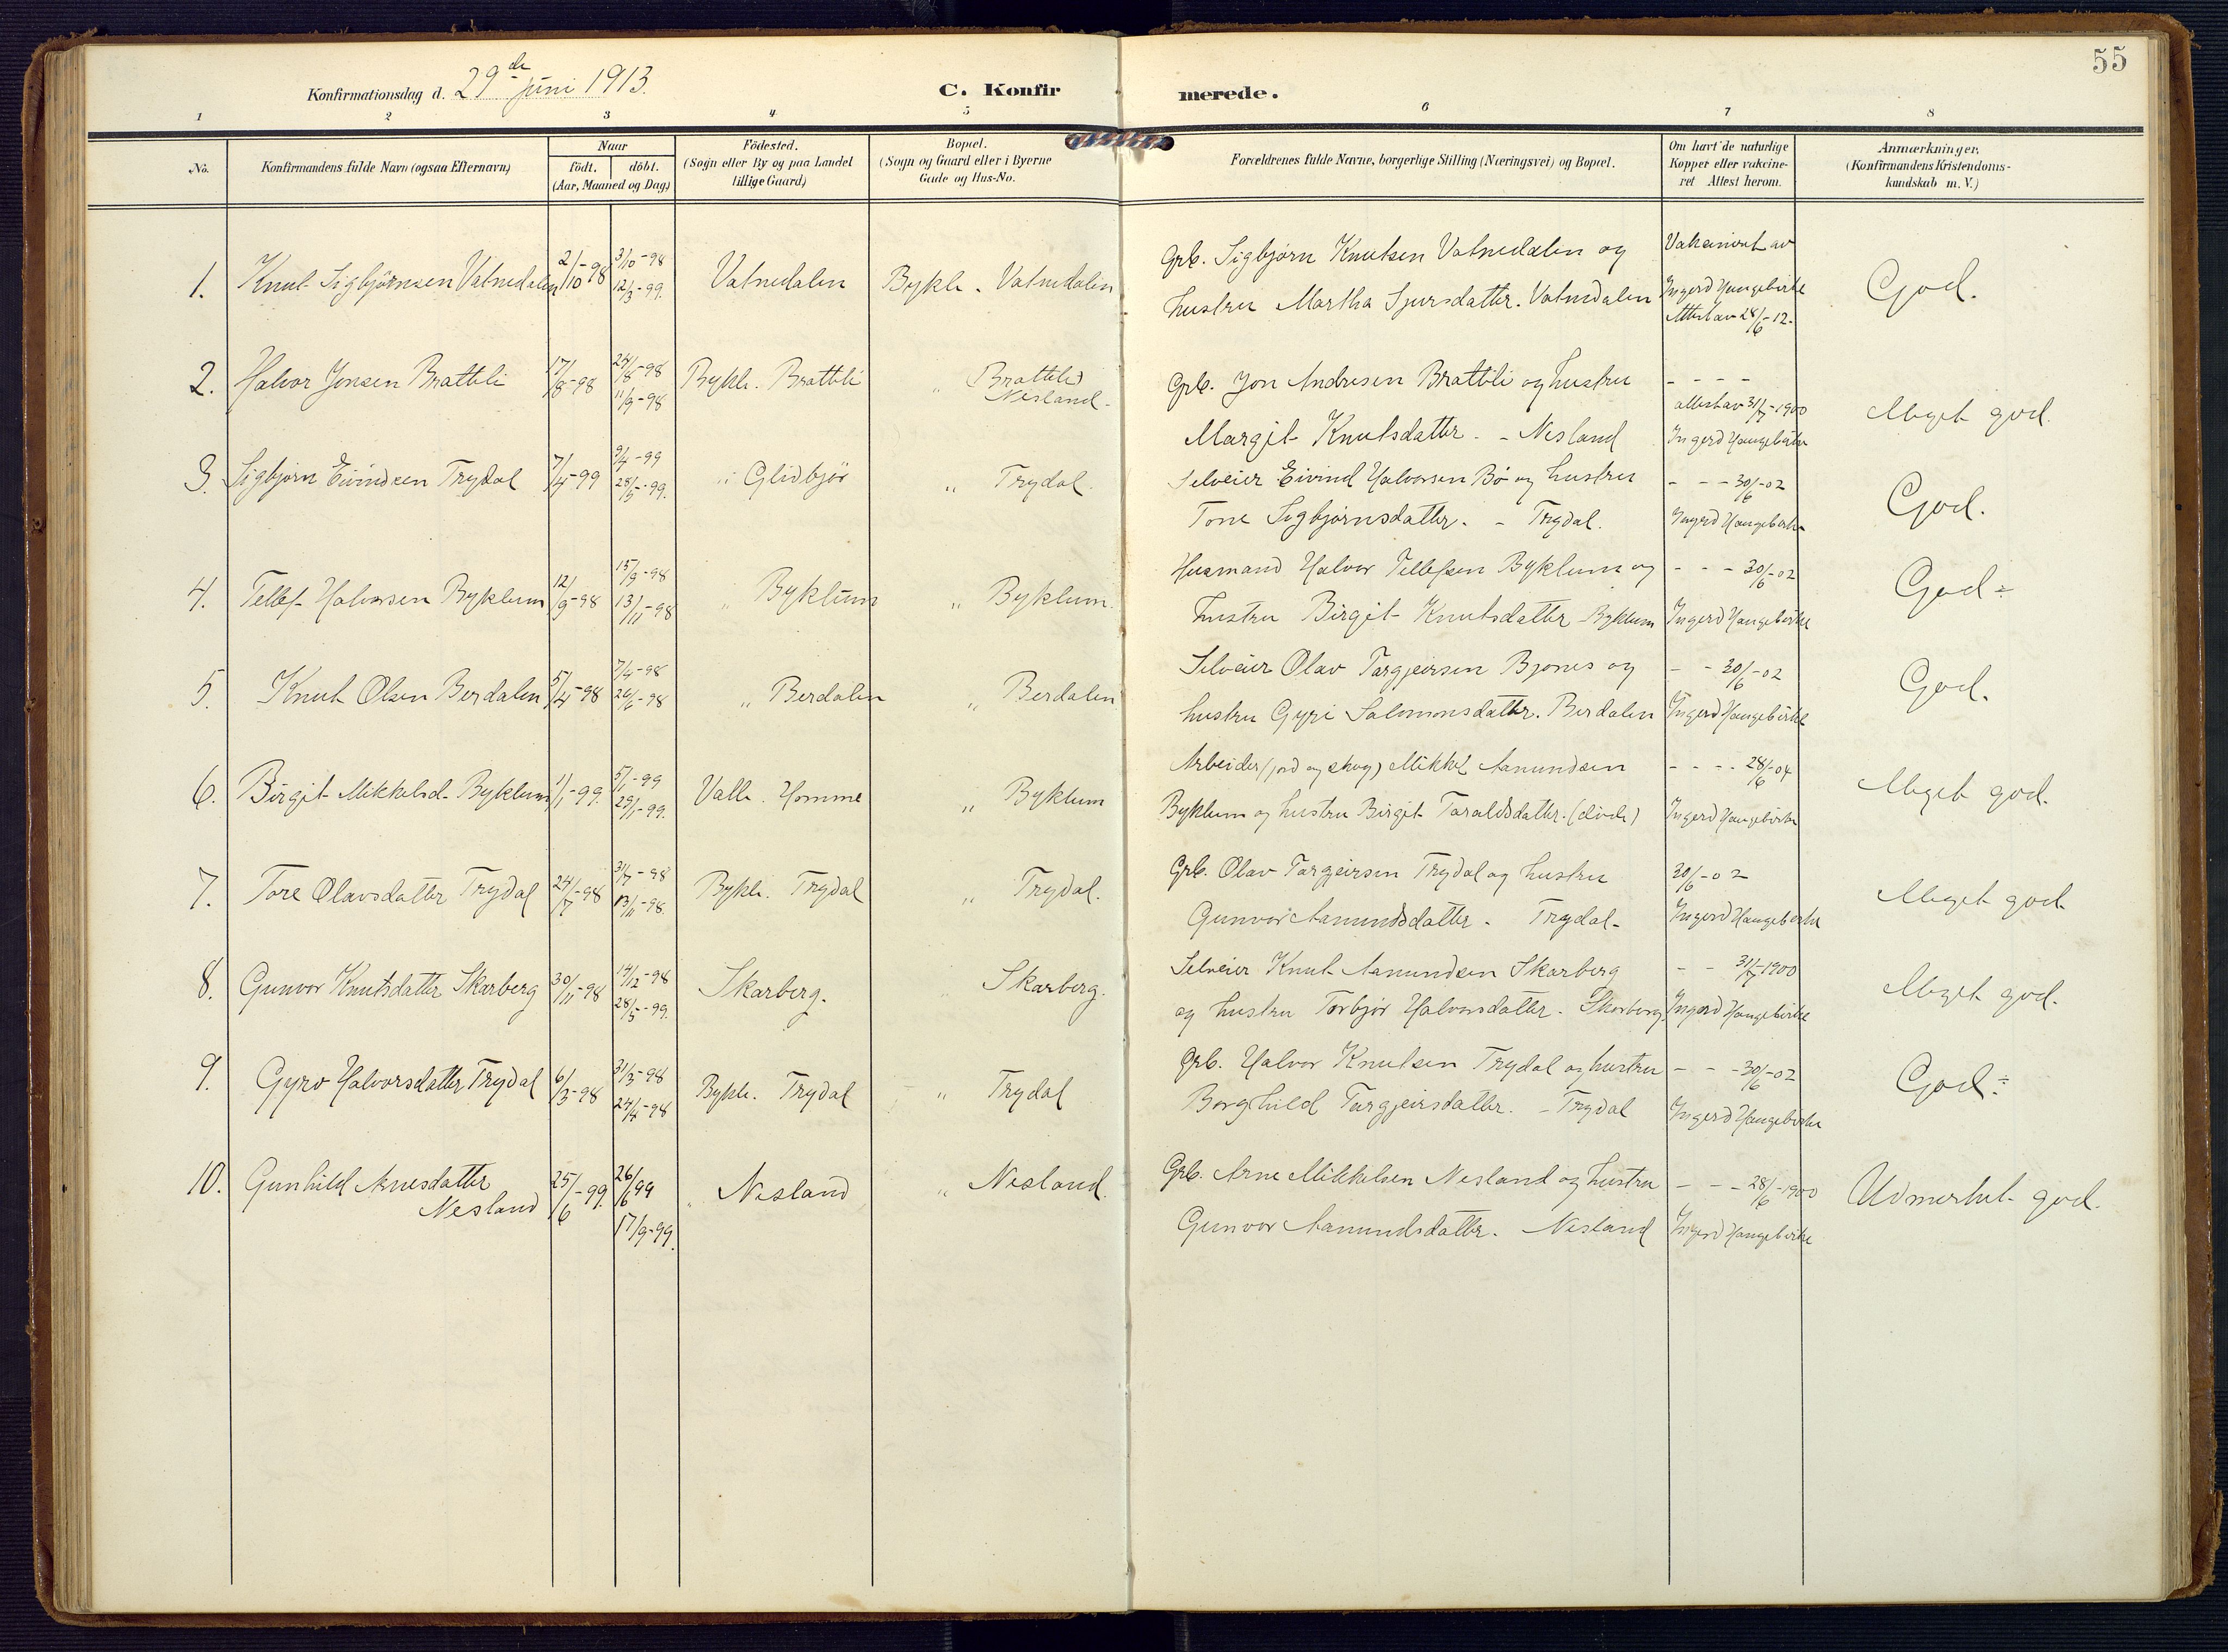 55
Konfirmationsdag d. 29de juni 1913.
C. Konfirmerede.
1 2 3 4 5 6 7 8
No.
Konfirmandens fulde Navn (ogsaa Efternavn)
Naar
födt. döbt.
(Aar, Maaned og Dag)
Födested.
(Sogn eller By og paa Landet
tillige Gaard)
Bopæl.
(Sogn og Gaard eller i Byerne
Gade og Hus-No.
Forældrenes fulde Navne, borgerlige Stilling (Næringsvei) og Bopæl.
Om havt de naturlige
Kopper eller vakcine-
ret Attest herom.
Anmærkninger.
(Konfirmandens Kristendoms-
kundskab m. V.)
1. Knut Sigbjørnsen Vatnedalen 2/10-98 3/10-98 12/3-99. Vatnedalen Bykle. Vatnedalen
Grb. Sigbjørn Knutsen Vatnedalen og
hustru Martha Sjursdatter. Vatnedalen
Vakcinert av
Ingerd Haugebirke
Attest av 28/6-12.
God.
2. Halvor Jonsen Brattli 17/8-98 24/8-98 11/9-98 Bykle. Brattli " Brattli)
Nesland.
Grb. Jon Andresen Brattli og hustru
Margit Knutsdatter. - Nesland
- - - -
attest av 31/7-1900
Ingerd Haugebirke
Meget god.
3. Sigbjørn Eivindsen Trydal 7/4-99 9/4-99 28/5-99. " Glidbjør " Trydal.
Selveier Eivind Halvorsen Bø og hustru
Tone Sigbjørnsdatter. - Trydal.
- - - 30/6-02
Ingerd Haugebirke
God.
4. Tellef Halvorsen Byklum 12/9-98 15/9-98 13/11-98 " Byklum " Byklum.
Husmand Halvor Tellefsen Byklum og
hustru Birgit Knutsdatter Byklum
- - - 30/6-02
Ingerd Haugebirke
God ÷
5. Knut Olsen Berdalen 5/4-98 7/4-98 26/6-98 " Berdalen " Berdalen
Selveier Olav Targjeirsen Bjones og
hustru Gyri Salomonsdatter. Berdalen
- - 30/6-02
Ingerd Haugebirke
God.
6. Birgit Mikkelsd. Byklum 1/1-99. 5/1-99 29/1-99. Valle. Homme " Byklum
Arbeider (jord og skog) Mikkel Aamundsen
Byklum og hustru Birgit Taraldsdatter. (død)
- - - - 28/6-04
Ingerd Haugebirke
Meget god.
7. Tore Olavsdatter Trydal 24/7-98 31/7-98 13/11-98. Bykle. Trydal " Trydal.
Grb. Olav Targjeirsen Trydal og hustru
Gunvor Aamundsdatter - Trydal-
30/6-02
Ingerd Haugebirke
Meget god
8. Gunvor Knutsdatter Skarberg 30/11-98 14/12-98 28/5-99. Skarberg. Skarberg.
Selveier Knut Aamundsen Skarberg
og hustru Torbjør Halvorsdatter. Skarberg.
- - 31/7-1900
Ingerd Haugebirke
Meget god.
9. Gyro Halvorsdatter Trydal 6/3-98 31/3-98 24/4-98 Bykle. Trydal " Trydal
Grb. Halvor Knutsen Trydal og hustru
Borghild Targjeirsdatter. - Trydal
- - - 30/6-02
Ingerd Haugebirke
God ÷
10. Gunhild Arnesdatter
Nesland 25/6-99. 26/6 99 17/9-99. " Nesland " Nesland.
Grb. Arne Mikkelsen Nesland og hustru
Gunvor Aamundsdatter. Nesland
- - - 28/6-1900
Ingerd Haugebirke
Udmerket god.